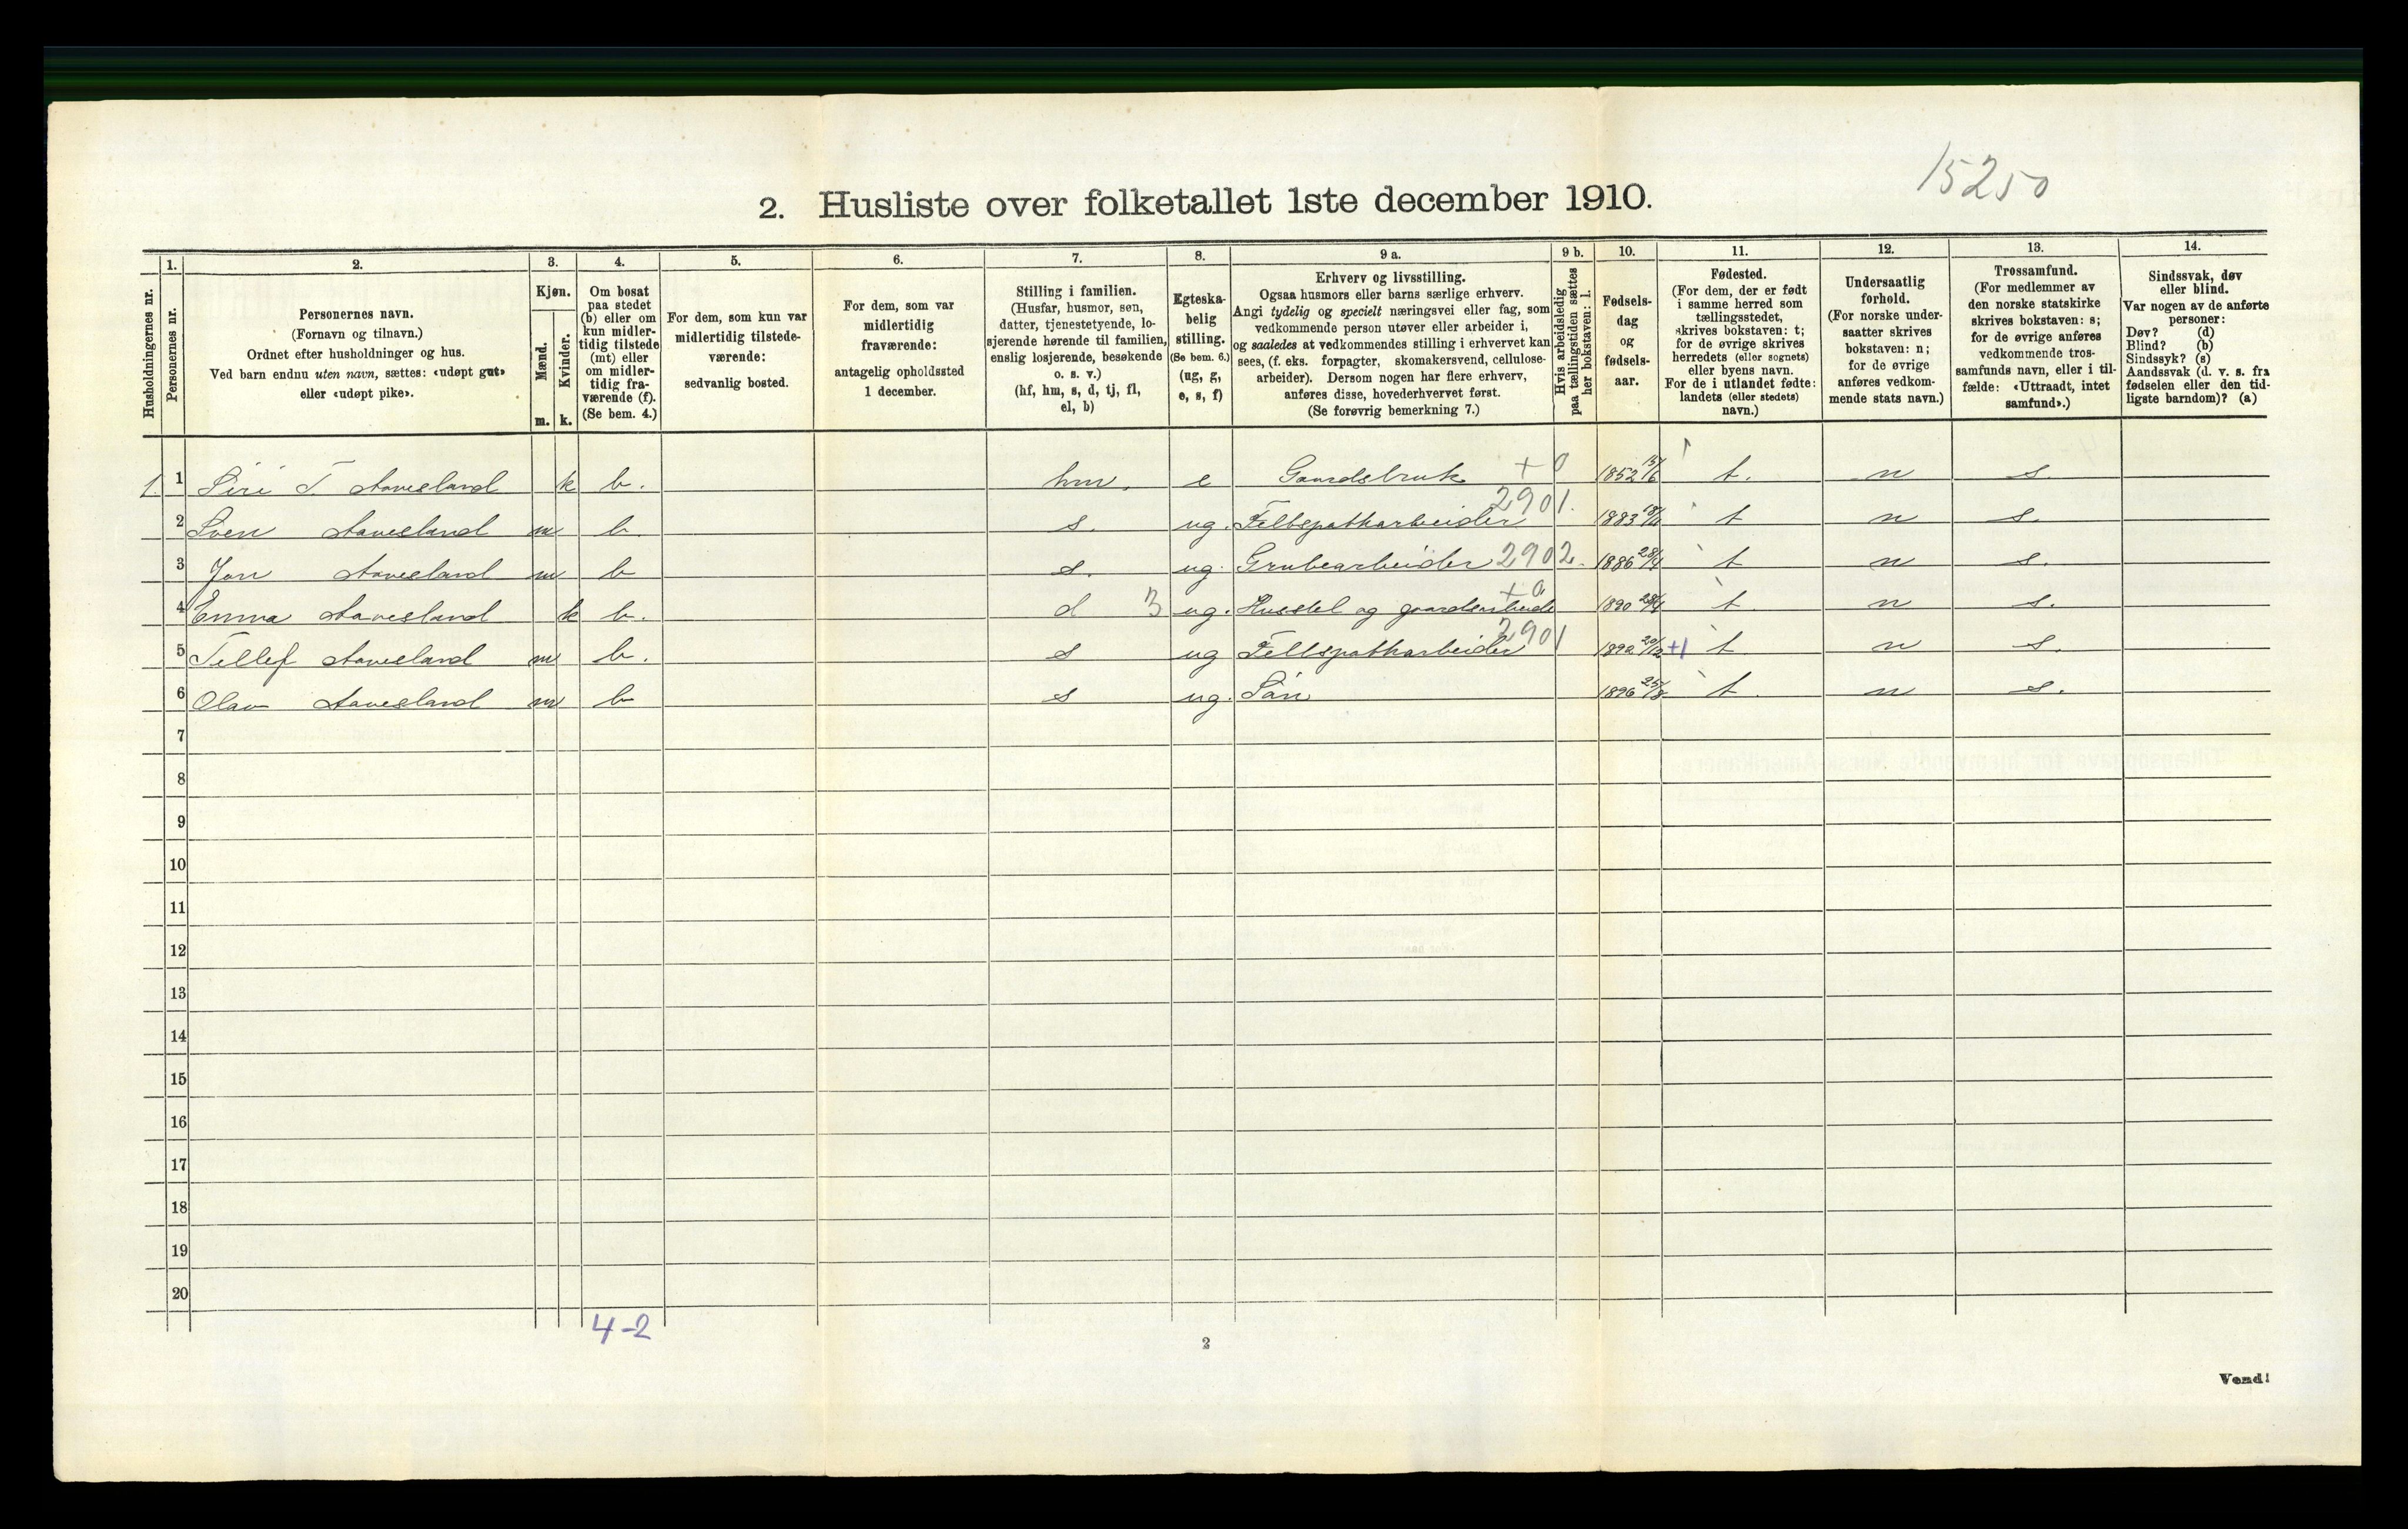 15250
2. Husliste over folketallet 1ste december 1910.
Husholdningernes nr.
1.
Personernes nr.
2.
Personernes navn.
(Fornavn og tilnavn.)
Ordnet efter husholdninger og hus.
Ved barn endnu uten navn, sættes: «udøpt gut»
eller «udøpt pike».
3.
Kjøn.
Mænd.
Kvinder.
m. k.
4.
Om bosat
paa stedet
(b) eller om
kun midler-
tidig tilstede
(mt) eller
om midler-
tidig fra-
værende (f).
(Se bem. 4.)
5.
For dem, som kun var
midlertidig tilstede-
værende:
sedvanlig bosted.
6.
For dem, som var
midlertidig
fraværende:
antagelig opholdssted
1 december.
7.
Stilling i familien.
(Husfar, husmor, søn,
datter, tjenestetyende, lo-
sjerende hørende til familien,
enslig losjerende, besøkende
o. s. v.)
(hf, hm, s, d, tj, fl,
el, b)
8.
Egteska-
belig
stilling.
(Se bem. 6.)
(ug, g,
e, s, f)
9 a.
Erhverv og livsstilling.
Ogsaa husmors eller barns særlige erhverv.
Angi tydelig og specielt næringsvei eller fag, som
vedkommende person utøver eller arbeider i,
og saaledes at vedkommendes stilling i erhvervet kan
sees, (f. eks. forpagter, skomakersvend, cellulose-
arbeider). Dersom nogen har flere erhverv,
anføres disse, hovederhvervet først.
(Se forøvrig bemerkning 7.)
9 b.
Hvis arbeidsledig
paa tællingstiden sættes
her bokstaven: l.
10.
Fødsels-
dag
og
fødsels-
aar.
11.
Fødested.
(For dem, der er født
i samme herred som
tællingsstedet,
skrives bokstaven: t;
for de øvrige skrives
herredets (eller sognets)
eller byens navn.
For de i utlandet fødte:
landets (eller stedets)
navn.)
12.
Undersaatlig
forhold.
(For norske under-
saatter skrives
bokstaven: n;
for de øvrige
anføres vedkom-
mende stats navn.)
13.
Trossamfund.
(For medlemmer av
den norske statskirke
skrives bokstaven: s;
for de øvrige anføres
vedkommende tros-
samfunds navn, eller i til-
fælde: «Uttraadt, intet
samfund».)
14.
Sindssvak, døv
eller blind.
Var nogen av de anførte
personer:
Døv? (d)
Blind? (b)
Sindssyk? (s)
Aandssvak (d. v. s. fra
fødselen eller den tid-
ligste barndom)? (a)
1. 1 Siri T. Aavesland k b. hm. e Gaardsbruk + 0 1852 15/6 t. n s.
2 Sven Aavesland m b. s. ug. Feltspatharbeider 2901. 1883 t n s.
3 Jon Aavesland m b s. ug. Grubearbeider 2902. 1886 28/4 t n s.
4 Emma Aavesland k b. d 3 ug. Husstel og gaardsarbeide +0 1890 t. n s.
5 Tellef Aavesland m b. s ug Feltspatharbeider 2901 1892 29/12 +1 t. n s.
6 Olav Aavesland m b s ug. Sön 1896 25/8 t. n s.
7
8
9
10
11
12
13
14
15
16
17
18
19
20
4-2
2
Vend!